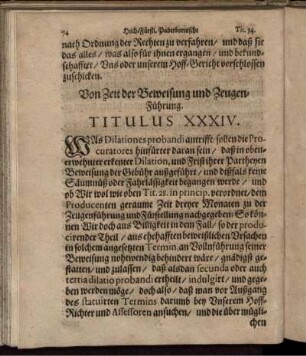 74 Hoch-Fürstl. Paderbornische Tit. 34.
nach Ordnung der Rechten zu verfahren / und daß sie
das alles / was also für ihnen ergangen / und bekund-
schafftet / Uns oder unserem Hoff-Gericht verschlossen
zuschicken.
Von Zeit der Beweisung und Zeugen-
Führung.
TITULUS XXXIV.
WAs Dilationes probandi antrifft sollen die Pro-
curatores hinfürter daran sein / daß in oben-
erwehnter erkenter Dilation, und Frist ihrer Partheyen
Beweisung der Gebühr außgeführt / und dißfals keine
Säumnüß oder Fahrlässigkeit begangen werde / und
ob Wir wol wie oben Tit. 28. in princip. verordnet / dem
Producenten geraume Zeit dreyer Monaten zu der
Zeugenführung und Fürstellung nachgegeben; So kön-
nen Wir doch aus Billigkeit in dem Fall / so der produ-
cirender Theil / aus ehehafften beweißlichen Ursachen
in solchem angesetzten Termin an Vollnführung seiner
Beweisung nohtwendig behindert wäre / gnädigst ge-
statten / und zulassen / daß alsdan secunda oder auch
tertia dilatio probandi ertheilt / indulgirt / und gege-
ben werden möge / doch also / daß man vor Außgang
des statuirten Termins darumb bey Unserem Hoff-
Richter und Assessoren ansuchen / und die über mügli-
chen